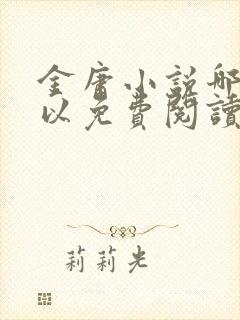 金庸小説哪
以免費閱讀
莉莉光